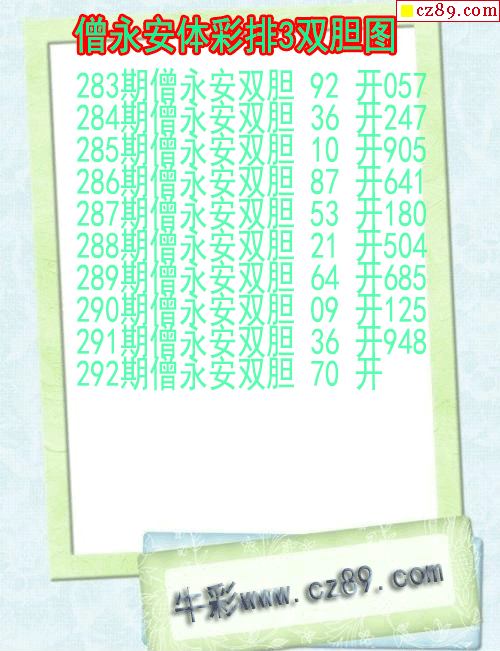 cz89.com
僧永安体彩排3双胆图
283期僧永安双胆 92 开057
284期僧永安双胆 36 开247
285期僧永安双胆 10 开905
286期僧永安双胆 87 开641
287期僧永安双胆 53 开180
288期僧永安双胆 21 开504
289期僧永安双胆 64 开685
290期僧永安双胆 09 开125
291期僧永安双胆 36 开948
292期僧永安双胆 70 开
牛彩www.cz89.com